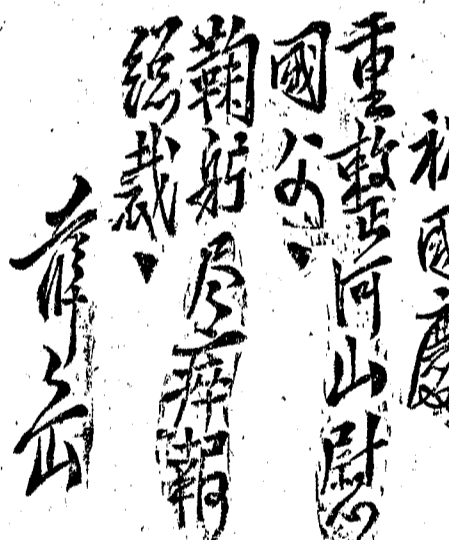 祝國慶
重整河山慰
國父、
鞠躬尽瘁報
總裁、
薛岳